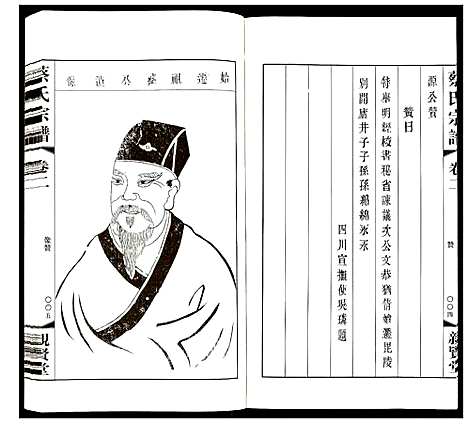 蔡氏宗譜
卷二
贊
〇〇四
親賢堂
源公贊
贊曰
特奏明經校書秘省諫議次公文恭猶倩
毘陵
別開廬井子子孫孫
四川宣撫使吳璘題
始遷祖
公
像
蔡氏宗譜
卷二
像贊
〇〇五
親賢堂